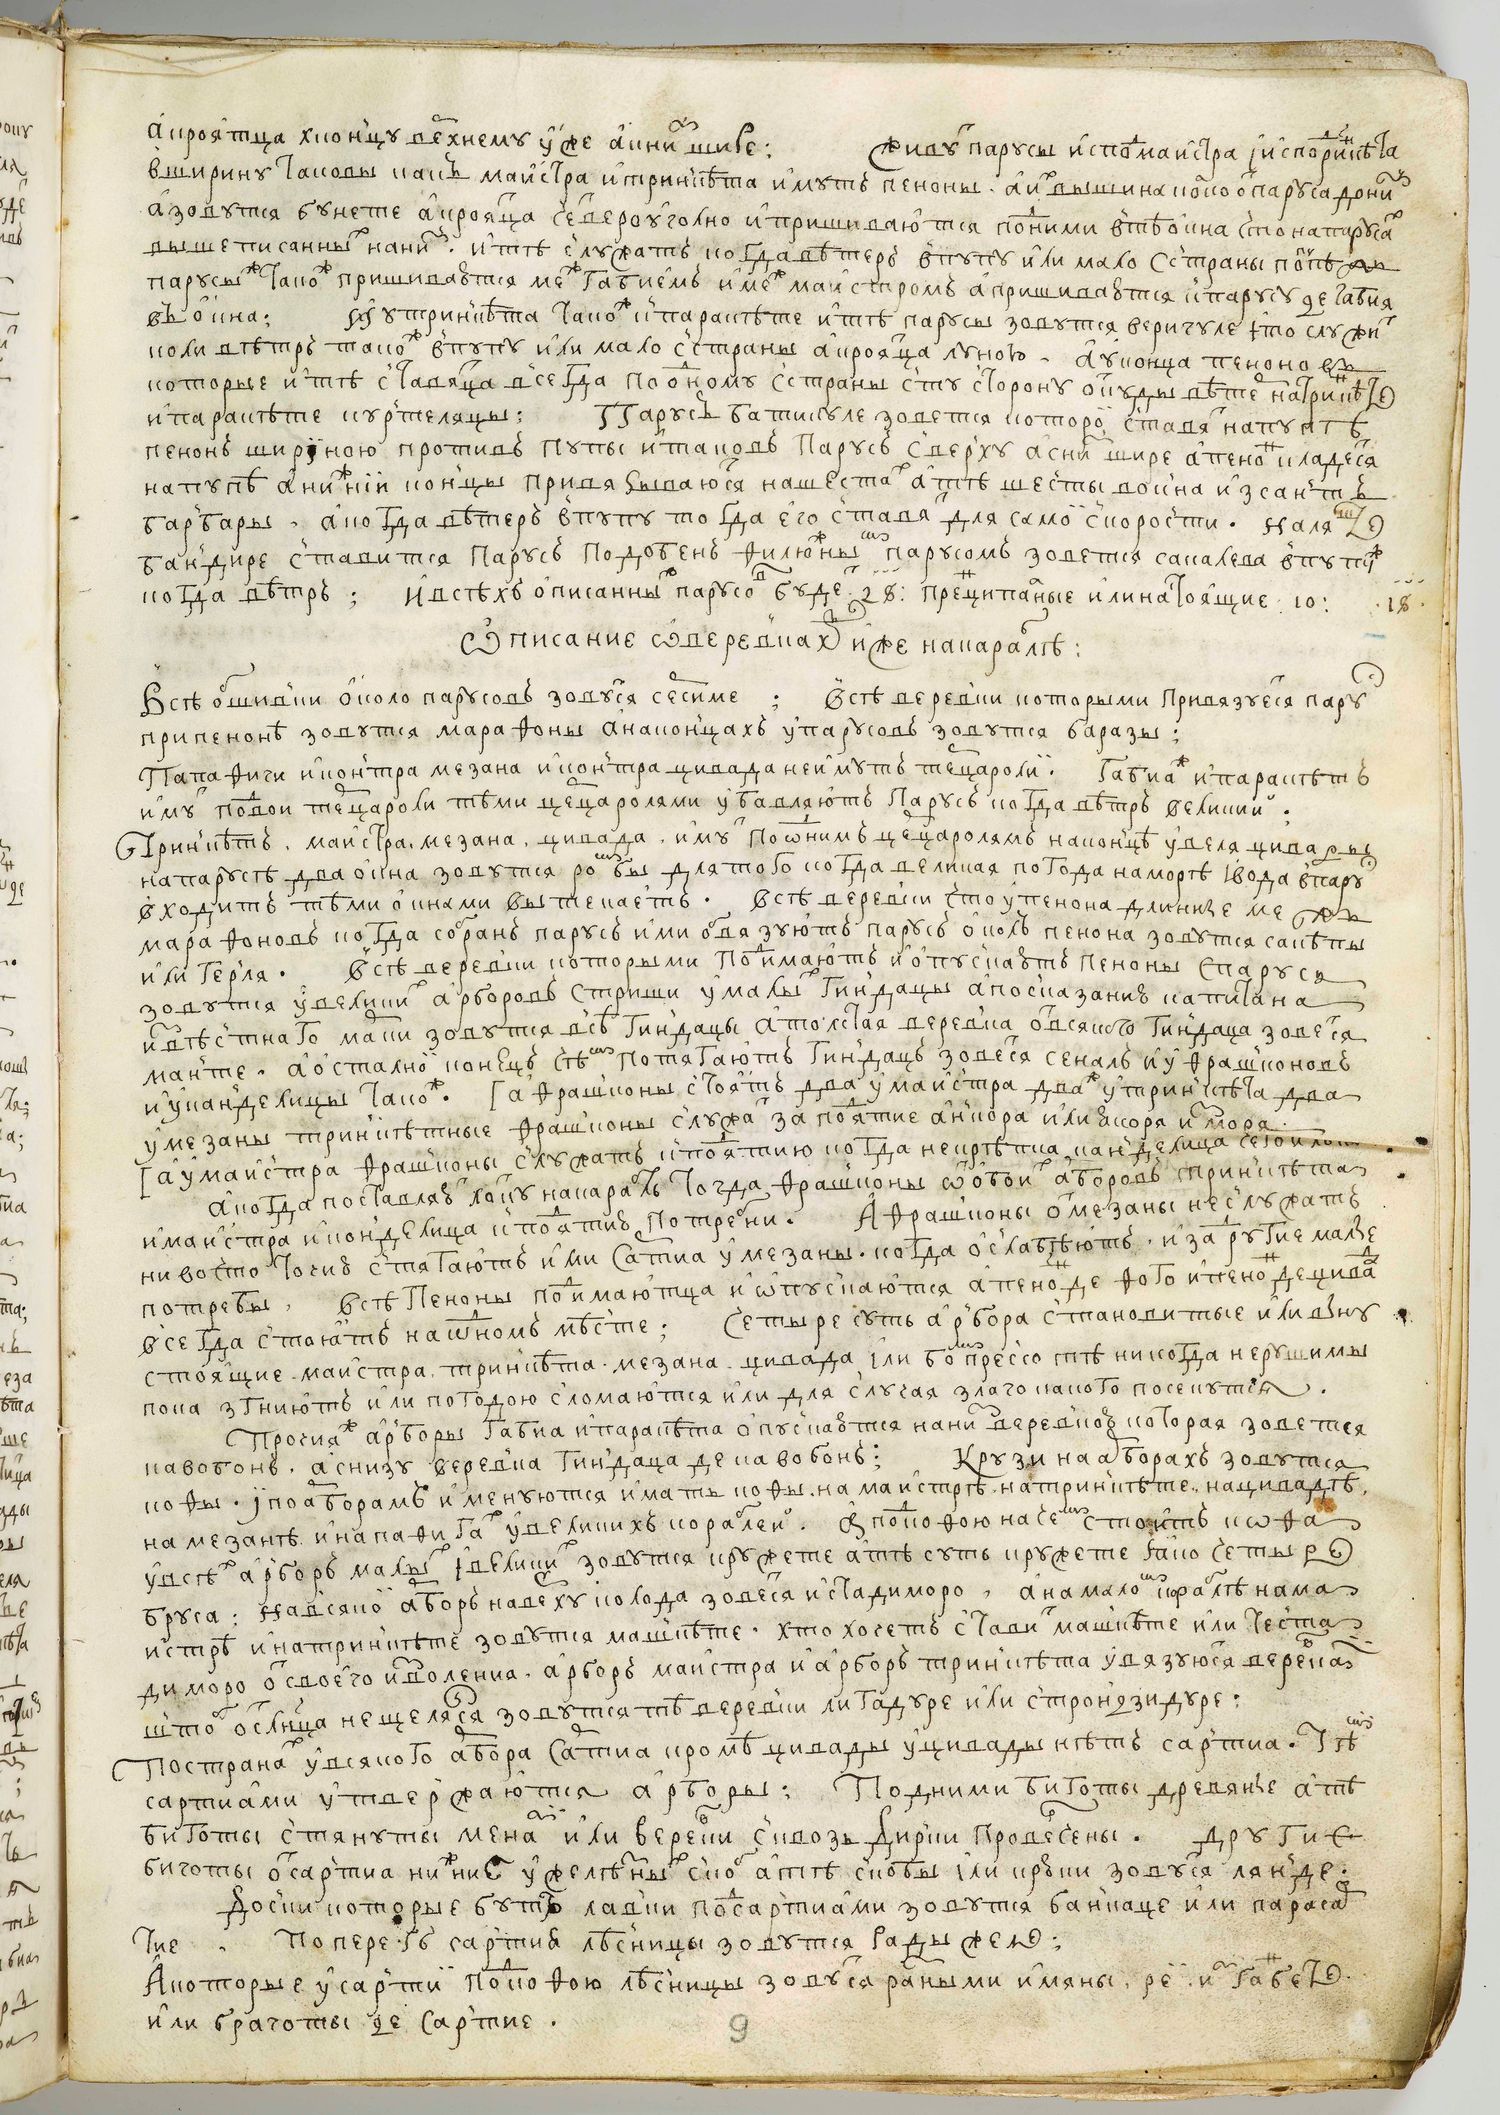 а кроятца х концу верхнему уже а книзу шире: живу парусы испод маистра i испод тринкѣта
в ширину таковы какъ маистра и тринкѣта имутъ пеноны. а их вышина
а зовутся бунете а кроятца четвероуголно и пришиваются под ними в тѣ окна что на парусах
вышеписанных на низу. и тѣ служатъ когда вѣтеръ в пупу или мало с стра́ны
парусы также пришиваются меж габиемъ и меж маистромъ а пришиваются к парусу де габия
в окна: У тринкѣта также и паракѣте и тѣ парусы зовутся веригуле то служит
коли вѣтръ також в пупу или мало с страны а кроятца луною. а у конца пеноновъ
которые и тѣ ставятца всегда по одному с страны с ту сторону откуды вѣтеръ на тринкѣте
и паракѣте куртеляцы: Парусъ батикуле зоветса которои ставят на пупѣ
пенонъ шириною противъ пупы и таковъ парусъ сверху а снизу шире а пенон кладется
на пупѣ а нижнiи концы привязываются на шестах а тѣ шесты вокна из санътъ
барбары. а когда вѣтеръ в пупу тогда его ставят для самои скорости. на лянте
бандире ставится парусъ подобенъ филюжным парусомъ зовется сакалева в пупу ж
когда вѣтръ; И всѣхъ описанных парусов будет 28: преципаные или настоящие 10: 18.
Описание о веревках иже на караблѣ:
Всѣ обшивки около парусовъ зовутся сесиме; Всѣ веревки которыми привязуется парус
при пенонѣ зовутся марафоны а на концахъ у парусовъ зовутся баразы:
Папафиги и контра мезана и контра цивада не имутъ тецароли. Габиа ж и паракѣтъ
имут по двои тецароли тѣми цецаролями убавляютъ парусъ когда вѣтръ великии.
Тринкѣтъ, маистра, мезана, цивада, имут по одним цецаролямъ на концѣ у веля цивады
на парусѣ два окна зовутся для того когда великая погода на морѣ i вода в парус
входитъ тѣми окнами вытекаетъ. Всѣ веревки что у пенона длинные меж
марафоновъ когда собранъ парусъ ими обвязуютъ парусъ около пенона зовутся сакѣты
или герля. Всѣ веревки которыми подимаютъ и опускаютъ пеноны с паруся
зовутся у великих арборовъ стриши у малых гиндацы а по сказанию капитана
мали зовутся всѣ гиндацы а толстая веревка от всякого гиндаца зовется
манте. а осталнои конецъ что потягаютъ гиндацъ зовется сеналъ и у фрашконовъ
и у канделицы тако ж. [а фрашконы стоятъ два у маистра два ж у тринкѣта два
у мезаны тринкѣтные фрашконы служат заподятие анкора или якоря из моря.
[а у маистра фрашконы служатъ к подятию когда не крѣпка канделица
а когда поставляют лотку на карабль тогда фрашконы от обоих арборовъ тринкѣта
и маистра и конделица к подятию потребни. А фрашконы от мезаны не служатъ
ни во что точию стягаютъ ими сартиа у мезаны. когда ослабѣютъ. и за другие малые
потребы. Всѣ пеноны подимаютца и опускаются а пенон де фого и пенон де цивада
всегда стоятъ на одномъ мѣсте; Четыре суть арбора становитые или вону
стоящие маистра, тринкѣта, мезана, цивада, iли бопрессо тѣ никогда нерушимы
пока згниютъ или погодою сломаются или для случая злаго какого посекутся.
Прочиа ж арборы габиа и паракѣта опускаются на низ веревкою которая зовется
кавобонъ, а снизу веревка гиндаца де кавобонъ; Крузи на арборахъ зовутся
кофы. i по арборамъ именуются имать кофы, на маистрѣ, на тринкѣте, на цивадѣ,
на мезанѣ и на папафигах у великихъ кораблеи. А под кофою на чемъ стоитъ кофа
у всѣх арборъ малых i великих зовутся кружете а тѣ суть кружете яко четыре
бруса: На всякои арборъ наверху колода зовется и стадиморо, а на малом караблѣ на ма
истрѣ и на тринкѣте зовутся машкѣте. хто хочетъ ставит машкѣте или теста
диморо от своего изволения. арборъ маистра и арборъ тринкѣта увязуются веревкою
чтоб от слнца не щелялся зовутся тѣ веревки лигадуре или стронзидуре:
По странах у всякого арбора сартиа кромѣ цивады у цивады нѣтъ сартиа. Тѣми
сартиами утвержаются арборы: Под ними биготы древяные а тѣ
биготы стянуты менал или веревки сквозь дирки проведены. Другие
биготы от сартиа нижние у желѣзных скоб а тѣ скобы iли крюки зовутся лянде:
Доски которые будто лавки под сартиами зовутся банкаце или парасар
тие. Попереч сартиа лѣсницы зовутся гадыжеле;
А которые у сартiи под кофою лѣсницы зовутся разными имяны,
или браготы де сартие.
9